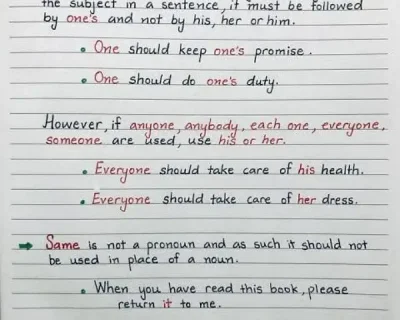 the subject in a sentence, it must be followed
by one's and not by his, her or him.
• One should keep one's promise.
• One should do one's duty.
However, if anyone, anybody, each one, everyone,
someone are used, use his or her.
• Everyone should take care of his health.
• Everyone should take care of her dress.
➡ Same is not a pronoun and as such it should not
be used in place of a noun.
• When you have read this book, please
return it to me.